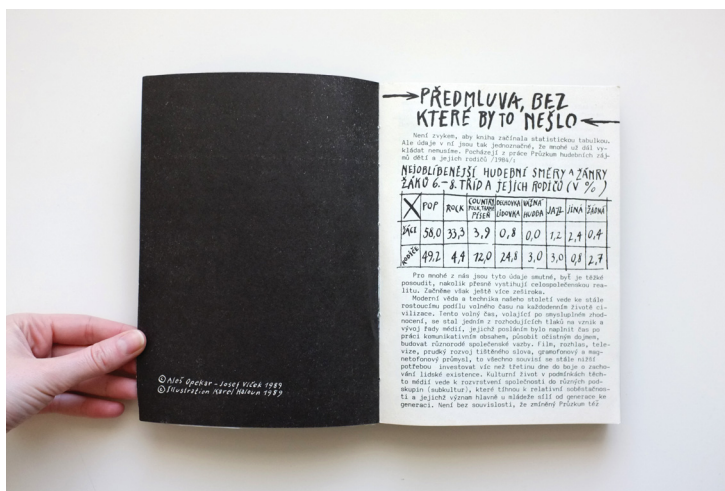 © Aleš Opekar - Josef Vlček 1989
© Illustration Karel Haloun 1989
PŘEDMLUVA, BEZ
KTERÉ BY TO NEŠLO
Není zvykem, aby kniha začínala statistickou tabulkou.
Ale údaje v ní jsou tak jednoznačné, že mnohé už dál vy-
kládat nemusíme. Pocházejí z práce Průzkum hudebních záj-
mů dětí a jejich rodičů /1984/:
NEJOBLÍBENĚJŠÍ HUDEBNÍ SMĚRY A ŽÁNRY
ŽÁKŮ 6.-8. TŘÍD A JEJICH RODIČŮ (V %)
X POP ROCK COUNTRY FOLK, TRAMP. PÍSEŇ DECHOVKA LIDOVKA VÁŽNÁ HUDBA JAZZ JINÁ ŽÁDNÁ
ŽÁCI 58,0 33,3 3,9 0,8 0,0 1,2 2,4 0,4
RODIČE 49,2 4,4 12,0 24,8 3,0 3,0 0,8 2,7
Pro mnohé z nás jsou tyto údaje smutné, byť je těžké
posoudit, nakolik přesně vystihují celospolečenskou rea-
litu. Začněme však ještě více zeširoka.
Moderní věda a technika našeho století vede ke stále
rostoucímu podílu volného času na každodenním životě ci-
vilizace. Tento volný čas, volající po smysluplném zhod-
nocení, se stal jedním z rozhodujících tlaků na vznik a
vývoj řady médií, jejichž posláním bylo naplnit čas po
práci komunikativním obsahem, působit očistným dojmem,
budovat různorodé společenské vazby. Film, rozhlas, tele-
vize, prudký rozvoj tištěného slova, gramofonový a mag-
netofonový průmysl, to všechno souvisí se stále nižší
potřebou investovat víc než třetinu dne do boje o zacho-
vání lidské existence. Kulturní život v podmínkách těch-
to médií vede k rozvrstvení společnosti do různých pod-
skupin (subkultur), které tíhnou k relativní soběstačnos-
ti a jejichž význam hlavně u mládeže sílí od generace ke
generaci. Není bez souvislosti, že zmíněný Průzkum též